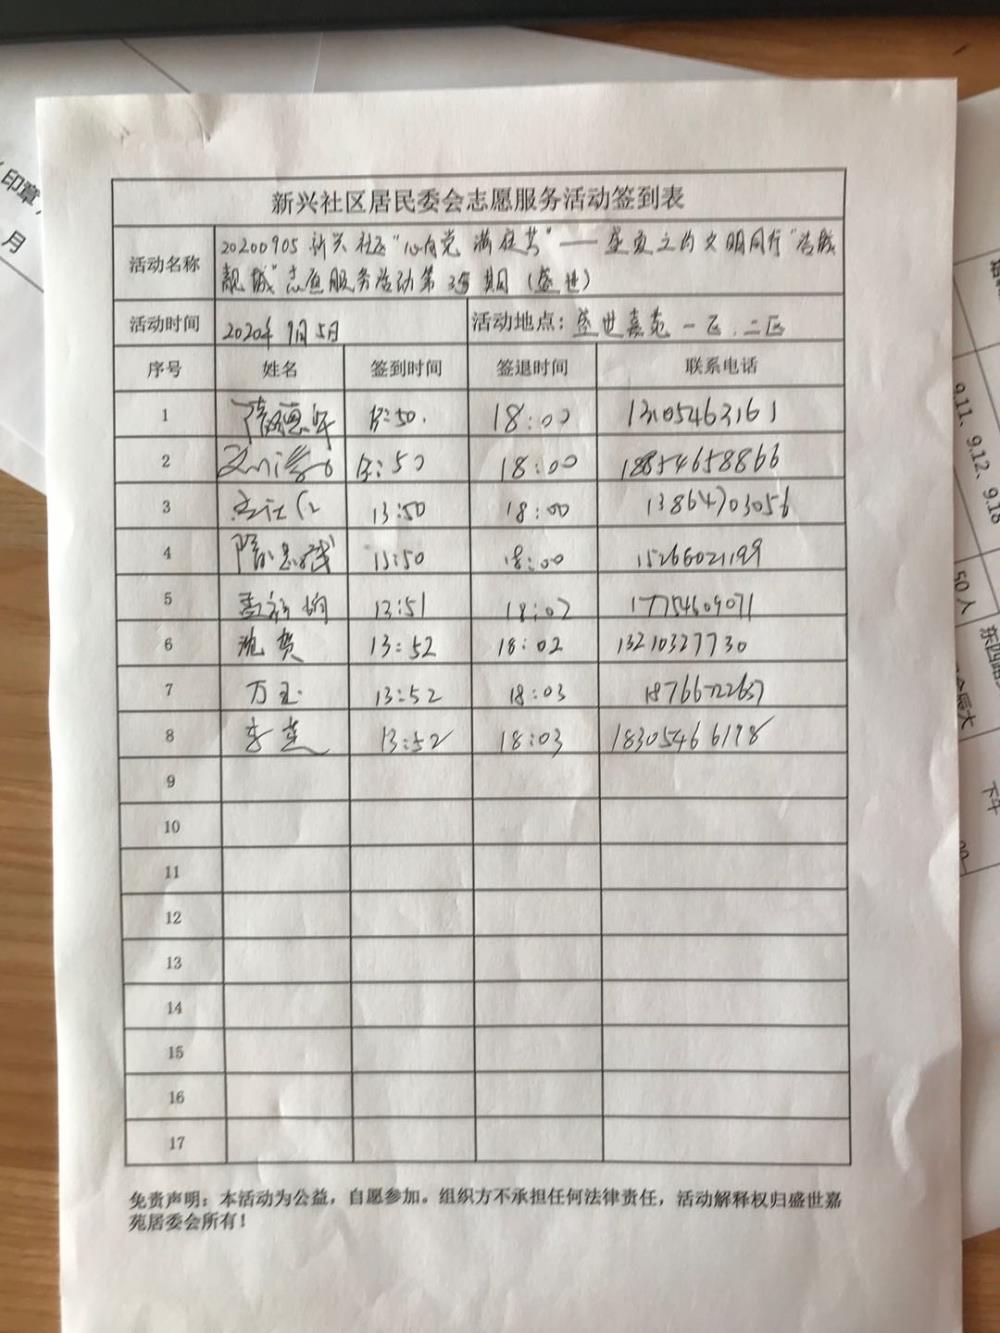 新兴社区居民委会志愿服务活动签到表
活动名称 20200905 新兴社区"心向党 满在其" —— 文明同行"洁城
靓城"志愿服务活动第 期（盛世）
活动时间 2020年9月5日 活动地点：盛世嘉苑 一区、二区
序号 姓名 签到时间 签退时间 联系电话
1 13:50 18:00 13105463161
2 13:50 18:00 18854658866
3 13:50 18:00 13864703056
4 13:50 18:00 15266021199
5 13:51 18:02 17754609071
6 沈贺 13:52 18:02 13210327730
7 万玉 13:52 18:03 18766722637
8 13:52 18:03 18305466198
9
10
11
12
13
14
15
16
17
免责声明：本活动为公益，自愿参加。组织方不承担任何法律责任，活动解释权归盛世嘉
苑居委会所有！
印章
月
9.11、9.12、9.18
50人
下午